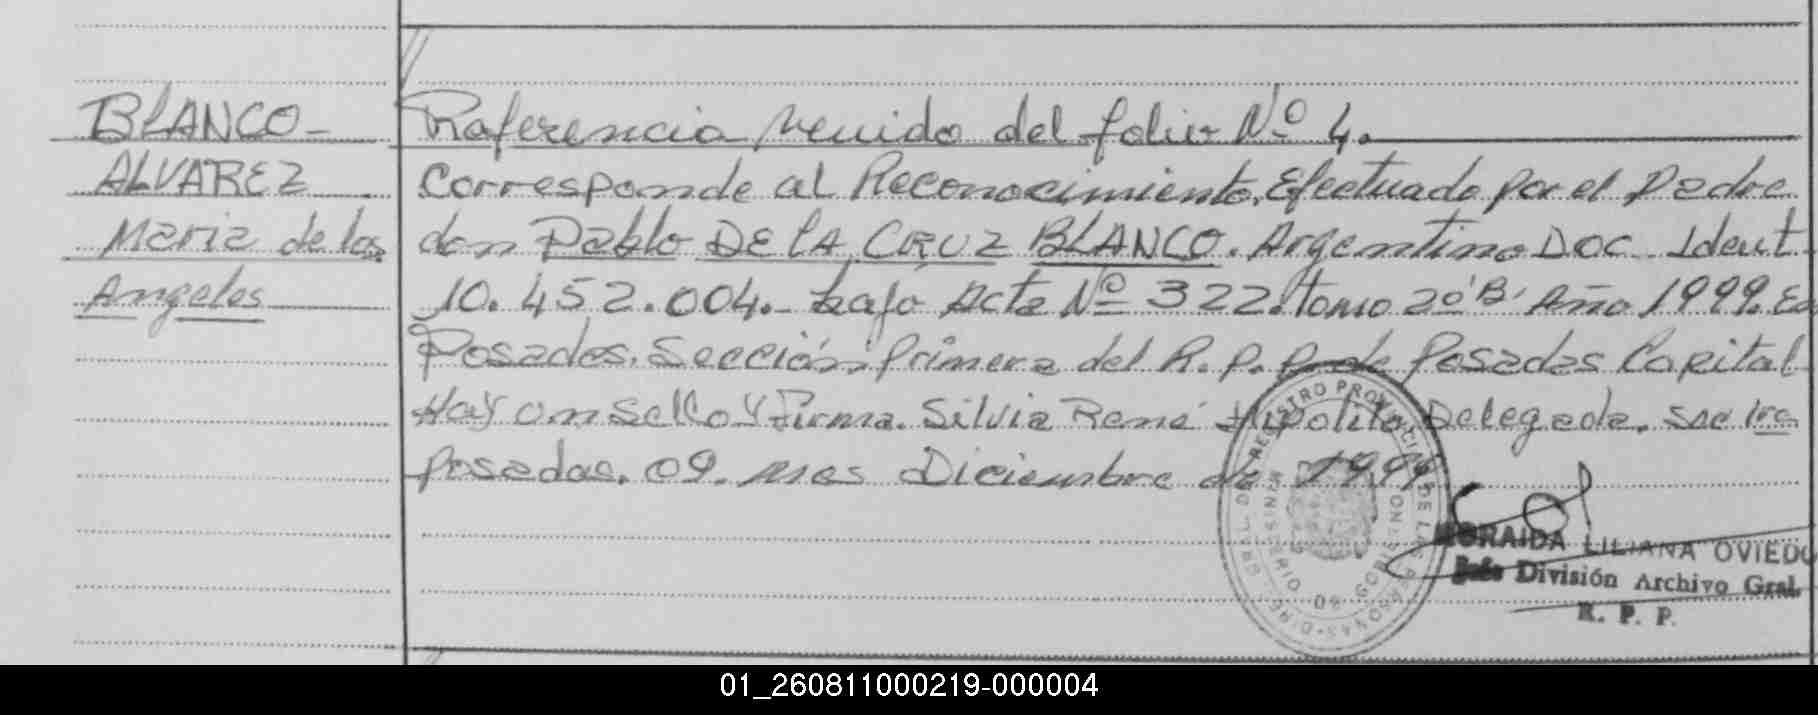 BLANCO-
ALVAREZ
Maria de los
Angeles
Referencia venido del folio Nº 4.
Corresponde al Reconocimiento. Efectuado por el Padre
don Pablo DE LA CRUZ BLANCO. Argentino Doc. Ident
10.452.004.- bajo Acta Nº 322. tomo 2º 'B' Año 1999. En
Posadas. Sección Primera del R. P. P. de Posadas Capital
Hay un Sello y Firma. Silvia René Hipolito Delegada. Sec 1ra
Posadas. 09. mes Diciembre de 1999.
DIREC. GRAL. DE REGISTRO PROVINCIAL DE LAS PERSONAS
MINISTERIO DE GOBIERNO
ZORAIDA LILIANA OVIEDO
Jefe División Archivo Gral.
R. P. P.
01_260811000219-000004